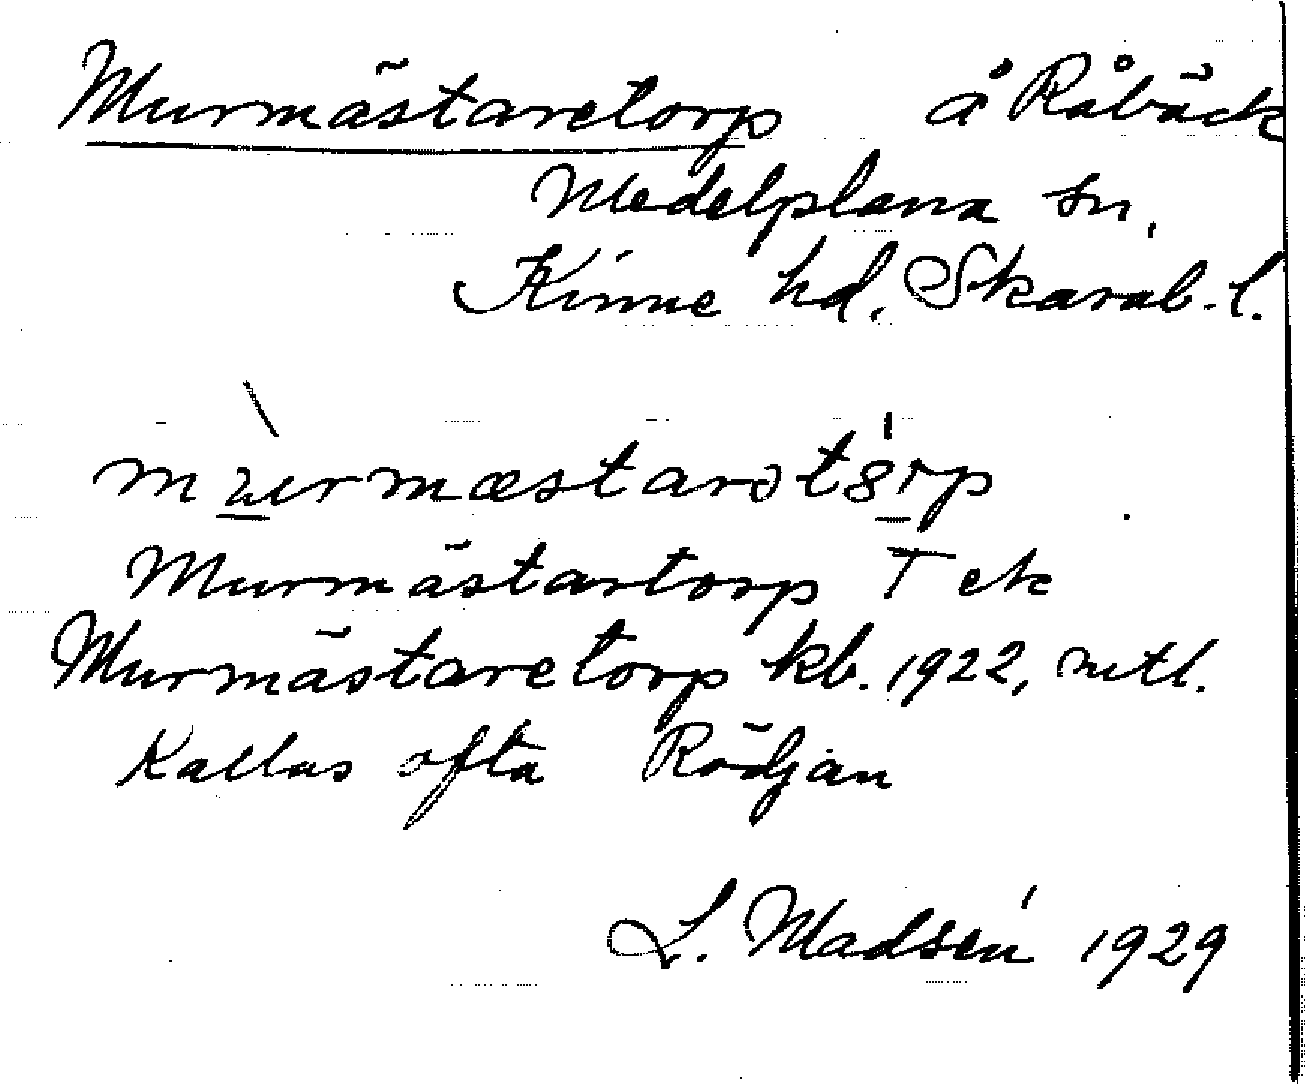 Murmästaretorp å Råbäck
Medelplana sn,
Kinne hd. Skarab. l.
mùrmæstarət8́rp
Murmästartorp T ek
Murmästaretorp kb. 1922, mtl.
Kallas ofta Rödjan
L. Madsén 1929